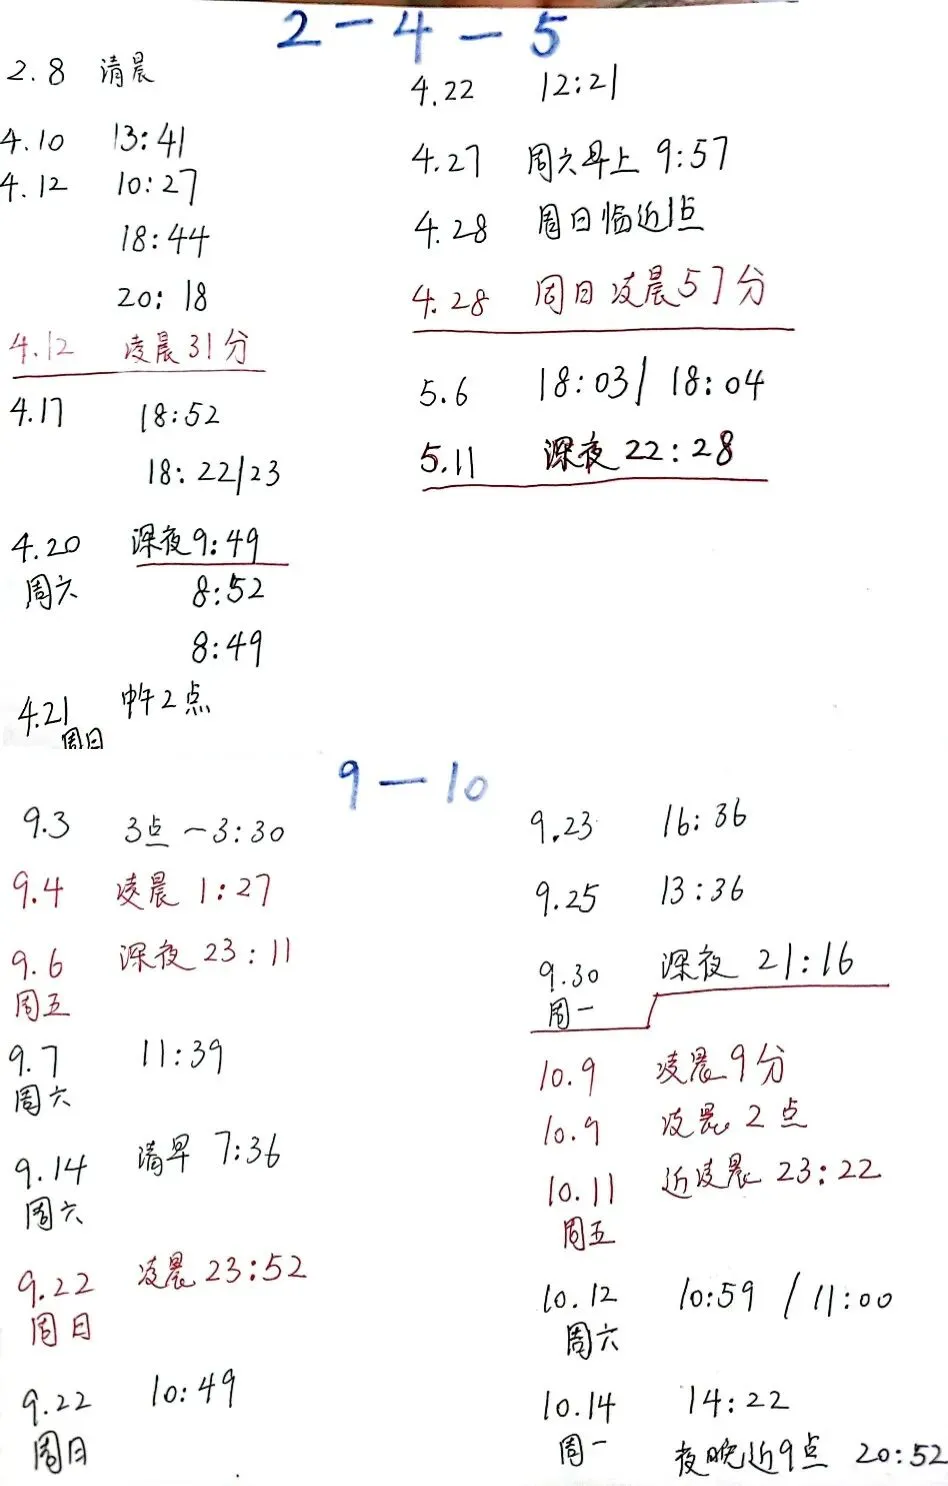 2-4-5
2.8 清晨
4.10 13:41
4.12 10:27
18:44
20:18
4.12 凌晨31分
4.17 18:52
18:22/23
4.20 深夜9:49
周六 8:52
8:49
4.21 中午2点
周日
4.22 12:21
4.27 周六早上 9:57
4.28 周日临近1点
4.28 周日凌晨57分
5.6 18:03/ 18:04
5.11 深夜 22:28
9-10
9.3 3点-3:30
9.4 凌晨 1:27
9.6 深夜 23:11
周五
9.7 11:39
周六
9.14 清早 7:36
周六
9.22 凌晨 23:52
周日
9.22 10:49
周日
9.23 16:36
9.25 13:36
9.30 深夜 21:16
周一
10.9 凌晨9分
10.9 凌晨 2点
10.11 近凌晨 23:22
周五
10.12 10:59 / 11:00
周六
10.14 14:22
周一 夜晚近9点 20:52